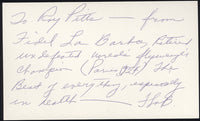 To Roy Pitts — from
Fidel La Barba, Retired
undefeated world's flyweight
champion (Paris, The
Best of everything, especially
in health —